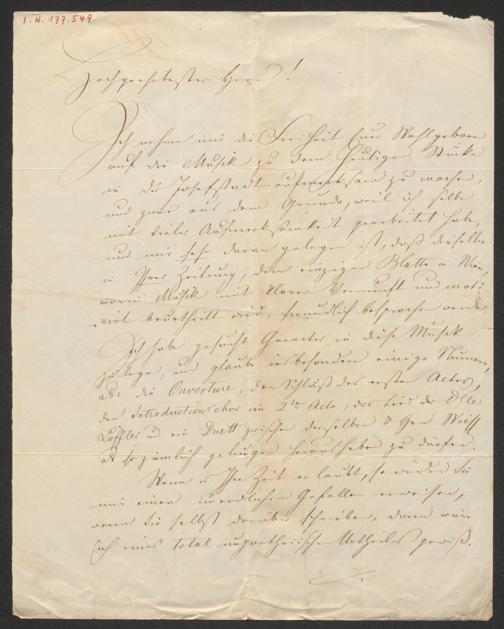 I.N. 177.549
Hochgeehrtester Herr!
Ich nehme mir die Freiheit Euer Wohlgeboren
auf die Musik zu dem heutigen Stücke
in der Josefstadt aufmerksam zu machen,
und zwar aus dem Grunde, weil ich selbe
mit vieler Aufmerksamkeit gearbeitet habe,
und mir sehr daran gelegen ist, daß dieselbe
in Ihrer Zeitung, dem einzigen Blatte in Wien,
worin Musik mit klarer Vernunft und moti-
virt beurtheilt wird, freundlich besprochen werde.
Ich habe gesucht Character in diese Musik
zu legen, und glaube insbesondere einige Nummern,
als: die Ouverture, den Schluß des ersten Actes,
den Introductionschor im 2ten Acte, das Lied der Dlle
Löffler und ein Duett zwischen derselben u Hrn Weiß
als so ziemlich gelungen herausheben zu dürfen.
Wenn es Ihre Zeit erlaubt, so würden Sie
mir einen unendlichen Gefallen erweisen,
wenn Sie selbst darüber schreiben, dann wäre
ich eines total unpartheiischen Urtheiles gewiß.